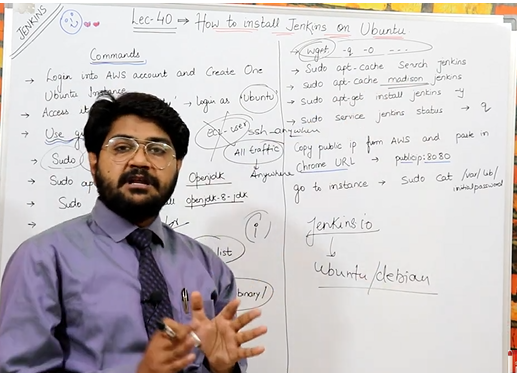 JENKINS
Lec-40 → How to install Jenkins on Ubuntu
Commands
→ Login into AWS account and Create One
Ubuntu Instance
→ Access it → Login as "Ubuntu"
ec2-user ssh-anywhere
→ Use
All traffic
→ Sudo
Anywhere
→ Sudo ap Openjdk
→ Sudo all openjdk-8-jdk
list
binary/
→ wget -q -O - - -
→ Sudo apt-cache Search jenkins
→ Sudo apt-cache madison jenkins
→ Sudo apt-get install jenkins -y
→ Sudo service jenkins status → q
Copy public ip from AWS and paste in
Chrome URL → publicip:8080
go to instance → Sudo cat /var/lib/
initialpassword
Jenkins.io
↓
Ubuntu/debian